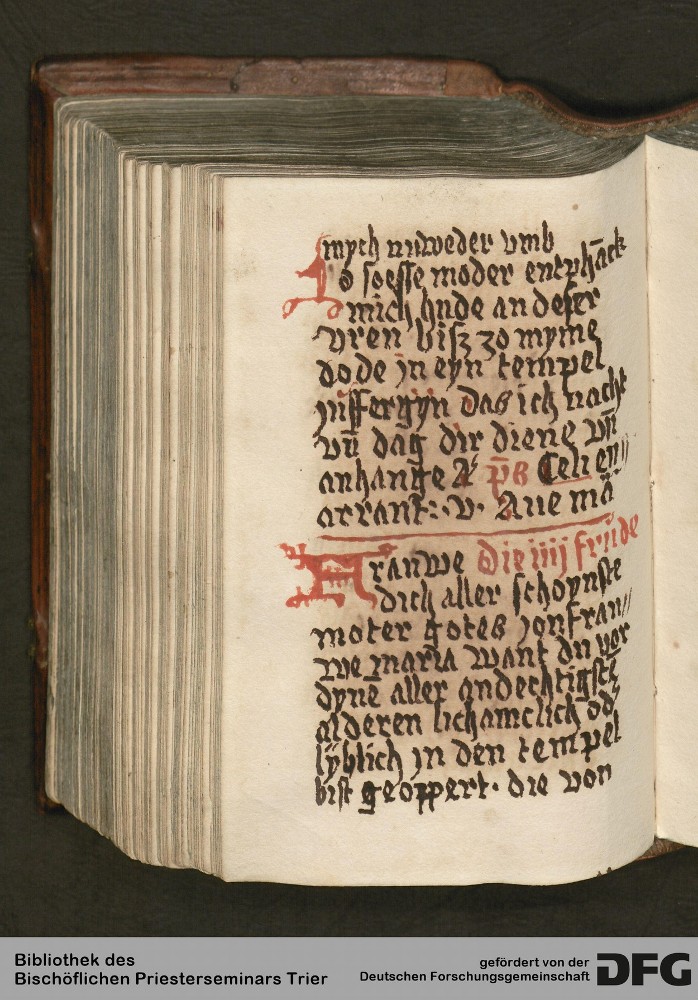 mych nuweder vmb
So soesse moder entphāck
mich hude an deser
vren bisz zo myme
dode jn eyn tempel
juffergijn das ich nacht
vn̄ dag dir diene vn̄
anhange A' p̄s Celi en//
arrant: v. Aue mā
Frauwe die iiij frude
dich aller schoynste
moter gotes jonfrau//
we maria want du vor
dynē aller andechtigstē
alderen lichamclich od'
lyblich jn den tempel
bist geoppert. die von
Bibliothek des
Bischöflichen Priesterseminars Trier
gefördert von der
Deutschen Forschungsgemeinschaft DFG